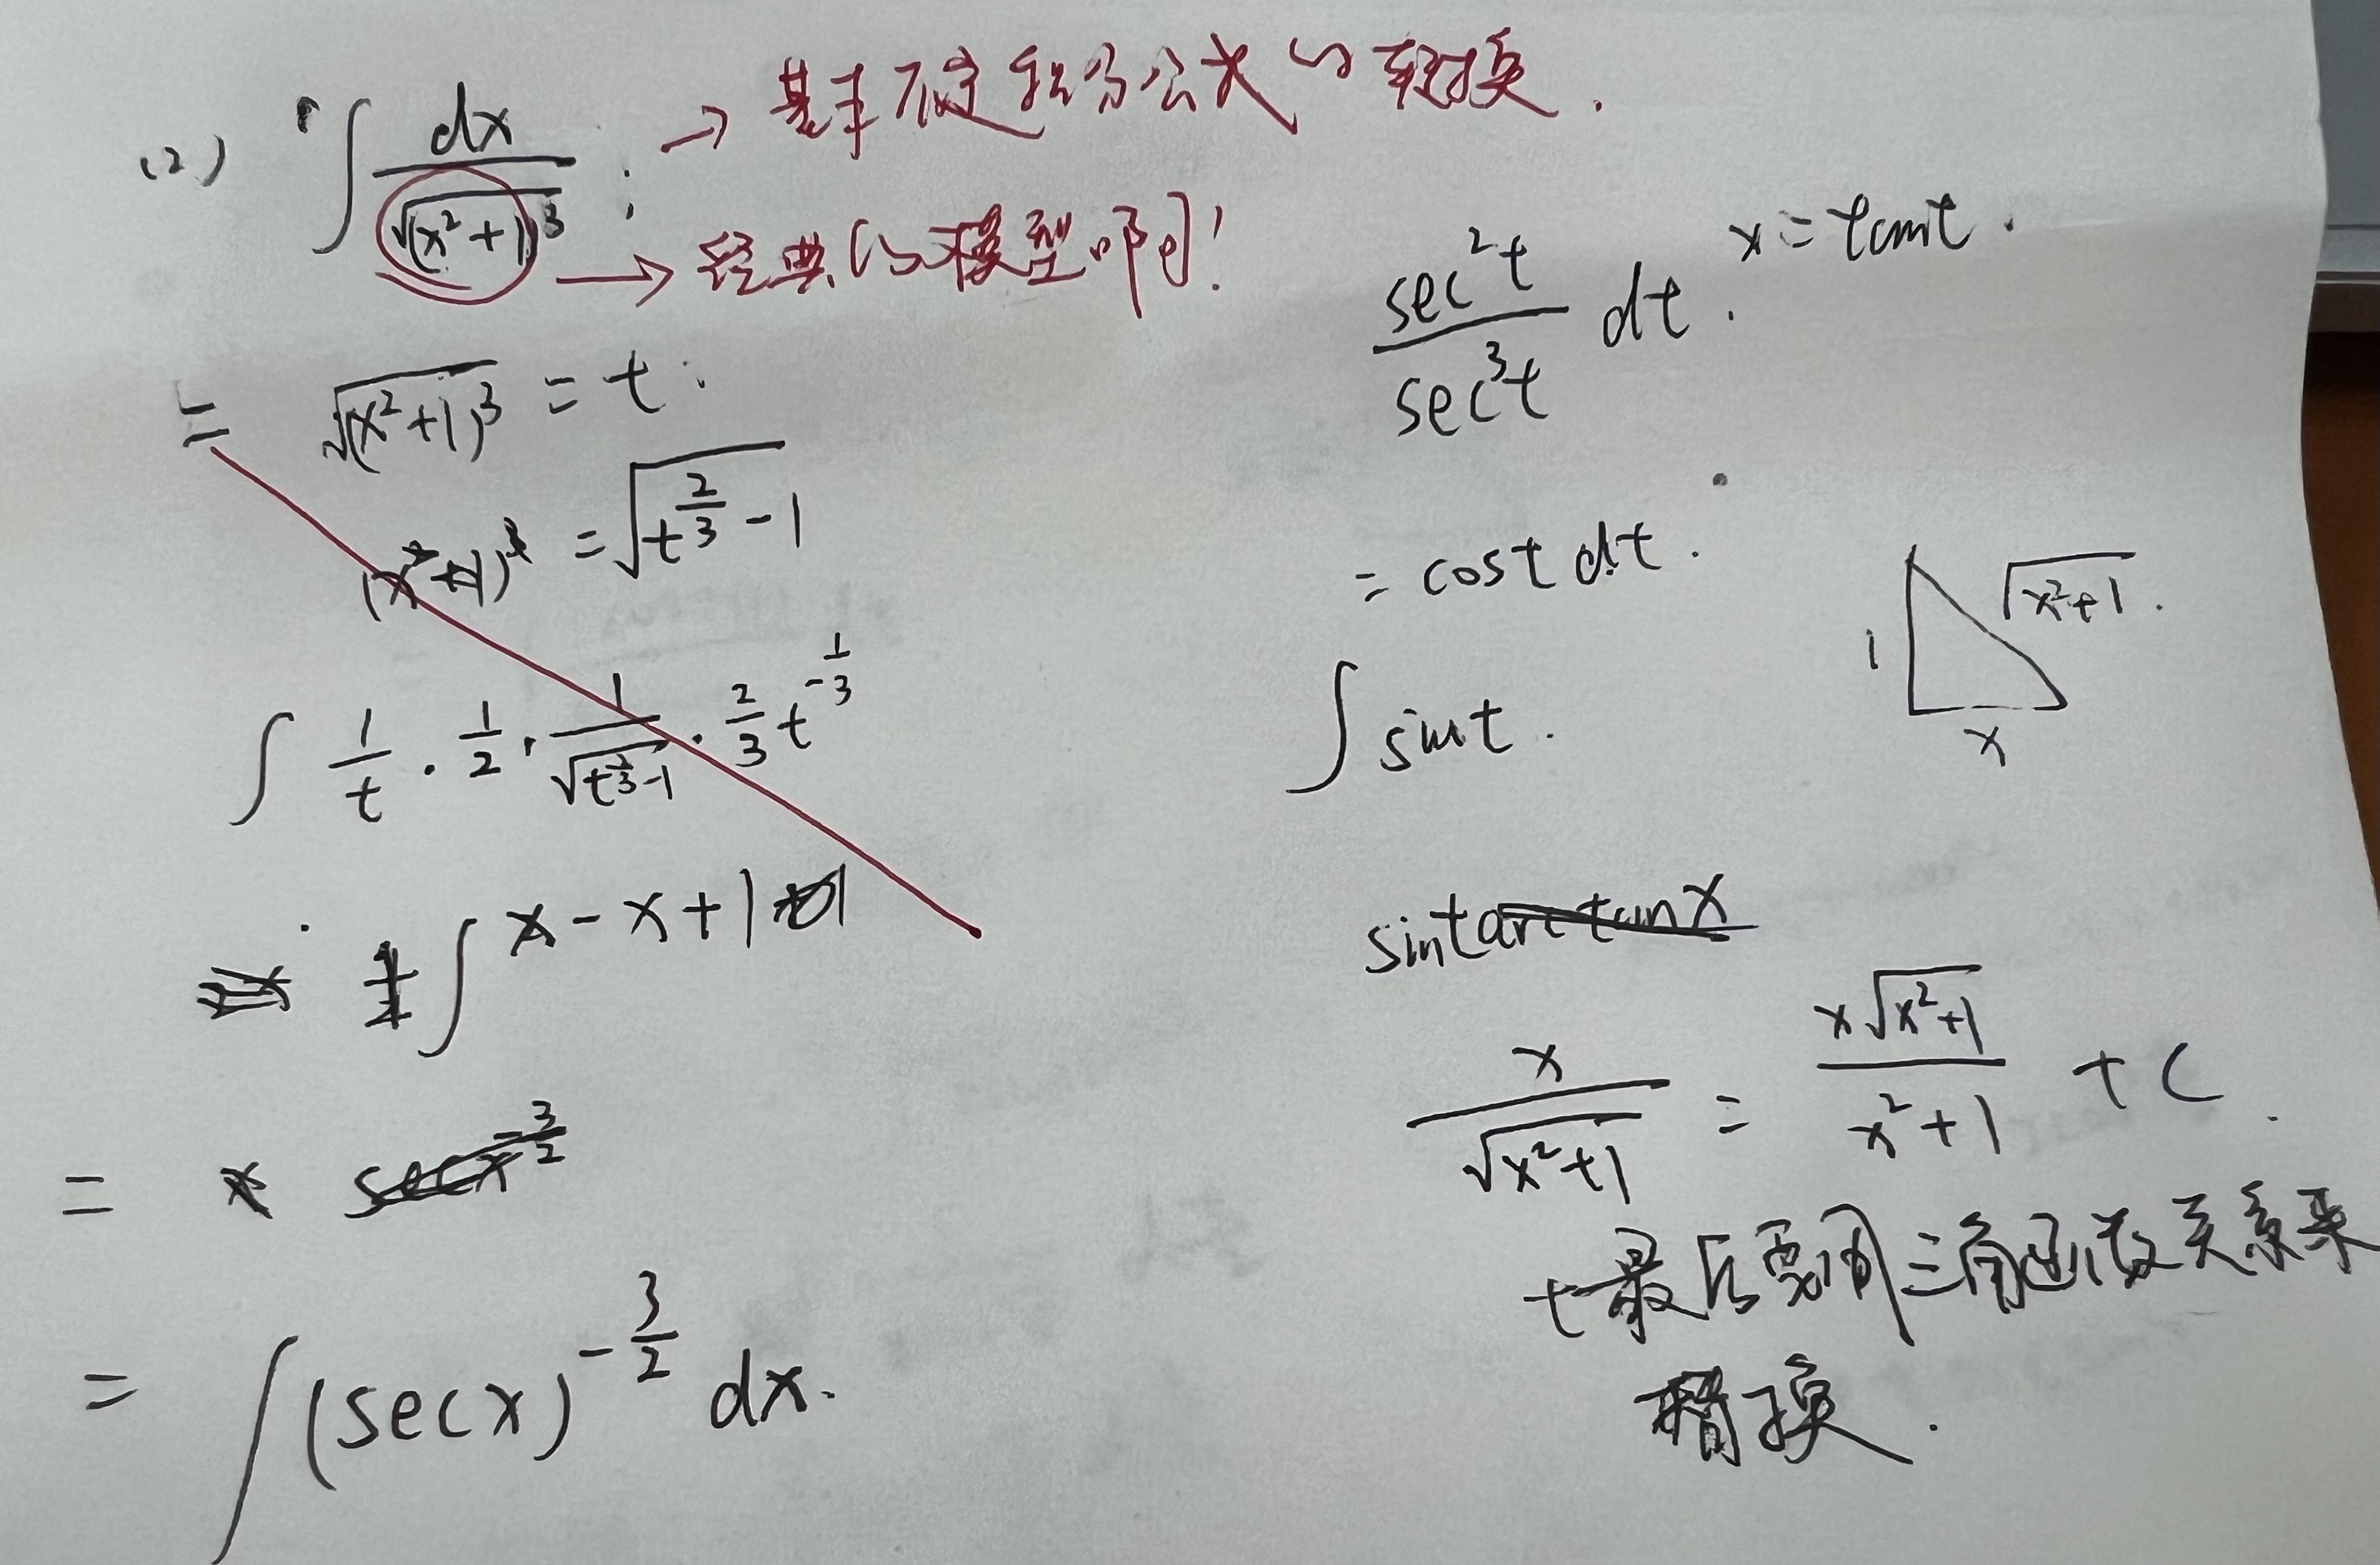 (2) ∫ dx / √(x²+1)³ ; → 基本不定积分公式的转换.
→ 经典的模型啊!
= √(x²+1)³ = t.
= √(t^(2/3) - 1)
∫ 1/t · 1/2 · 1/√(t^(2/3)-1) · 2/3 t^(-1/3)
∫ x - x + 1
=
= ∫ (secx)^(-3/2) dx.
x = tant.
sec²t / sec³t dt.
= cost dt.
1 √x²+1.
x
∫ sint.
sint
x / √x²+1 = x√x²+1 / x²+1 + C.
t最后要用三角函数关系来
替换.